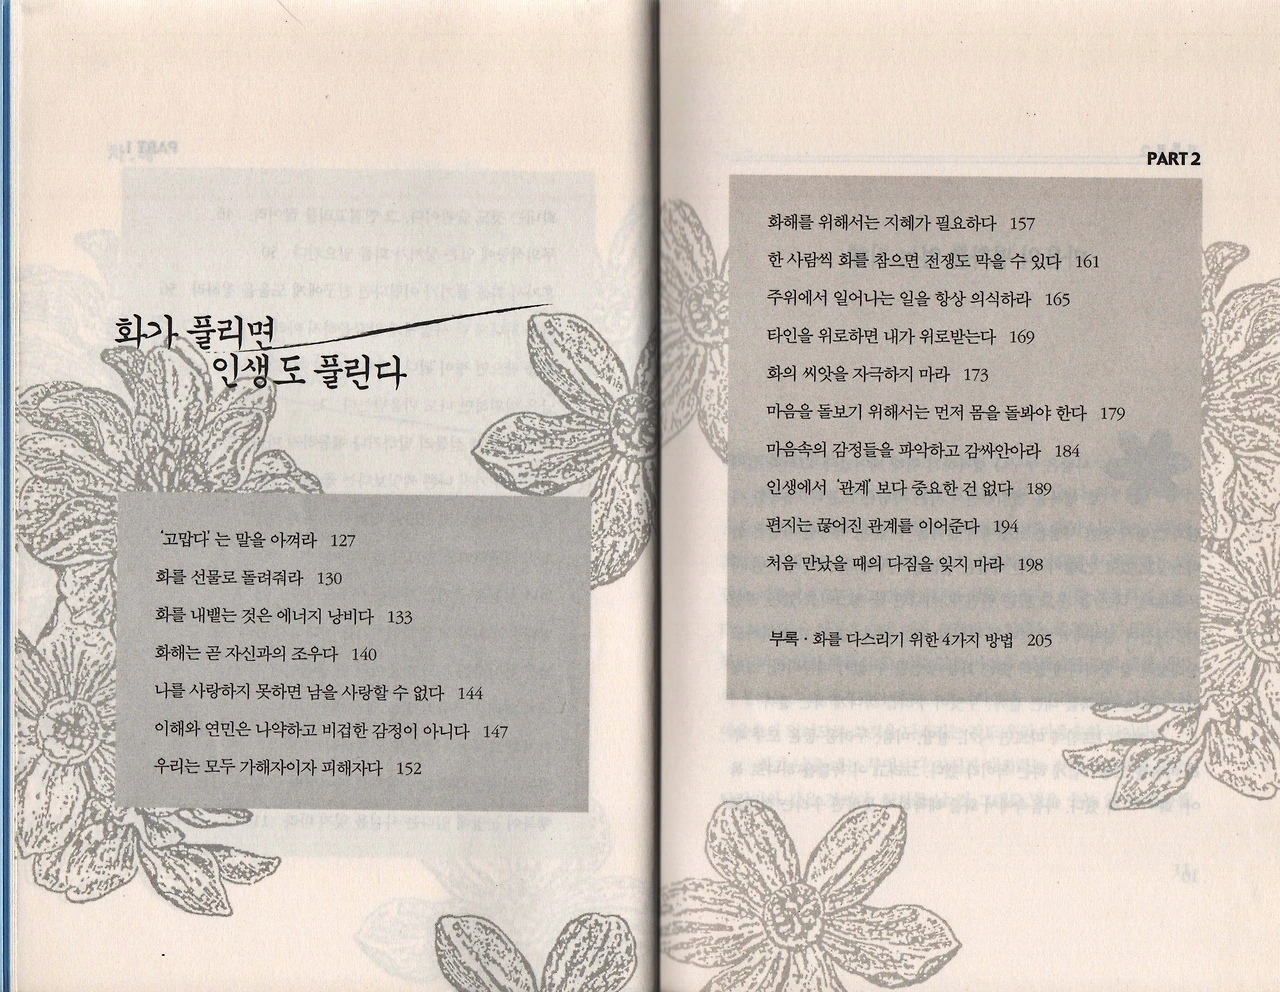 화가 풀리면
인생도 풀린다
‘고맙다’는 말을 아껴라 127
화를 선물로 돌려줘라 130
화를 내뱉는 것은 에너지 낭비다 133
화해는 곧 자신과의 조우다 140
나를 사랑하지 못하면 남을 사랑할 수 없다 144
이해와 연민은 나약하고 비겁한 감정이 아니다 147
우리는 모두 가해자이자 피해자다 152
PART 2
화해를 위해서는 지혜가 필요하다 157
한 사람씩 화를 참으면 전쟁도 막을 수 있다 161
주위에서 일어나는 일을 항상 의식하라 165
타인을 위로하면 내가 위로받는다 169
화의 씨앗을 자극하지 마라 173
마음을 돌보기 위해서는 먼저 몸을 돌봐야 한다 179
마음속의 감정들을 파악하고 감싸안아라 184
인생에서 ‘관계’보다 중요한 건 없다 189
편지는 끊어진 관계를 이어준다 194
처음 만났을 때의 다짐을 잊지 마라 198
부록 · 화를 다스리기 위한 4가지 방법 205